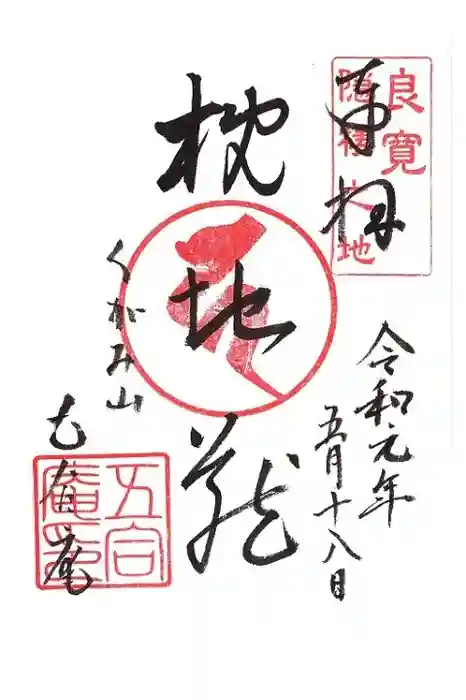 良寛
隠棲之地
奉拝
令和元年
五月十八日
枕地蔵
くがみ山
五合庵
五合庵